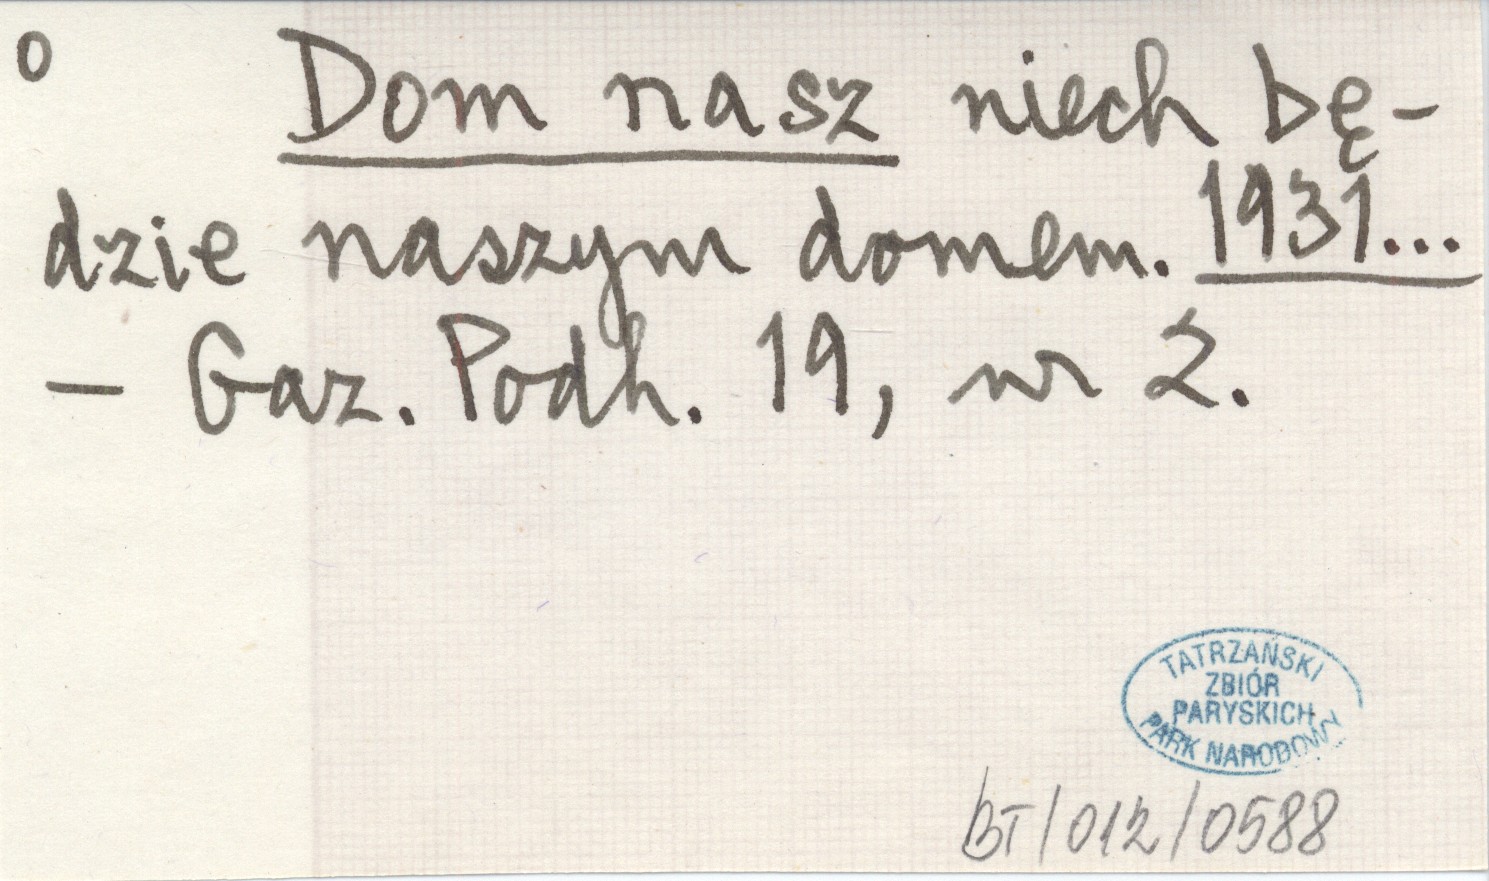 o Dom nasz niech bę-
dzie naszym domem. 1931...
– Gaz. Podh. 19, nr 2.
TATRZAŃSKI
ZBIÓR
PARYSKICH
PARK NARODOWY
BT/012/0588